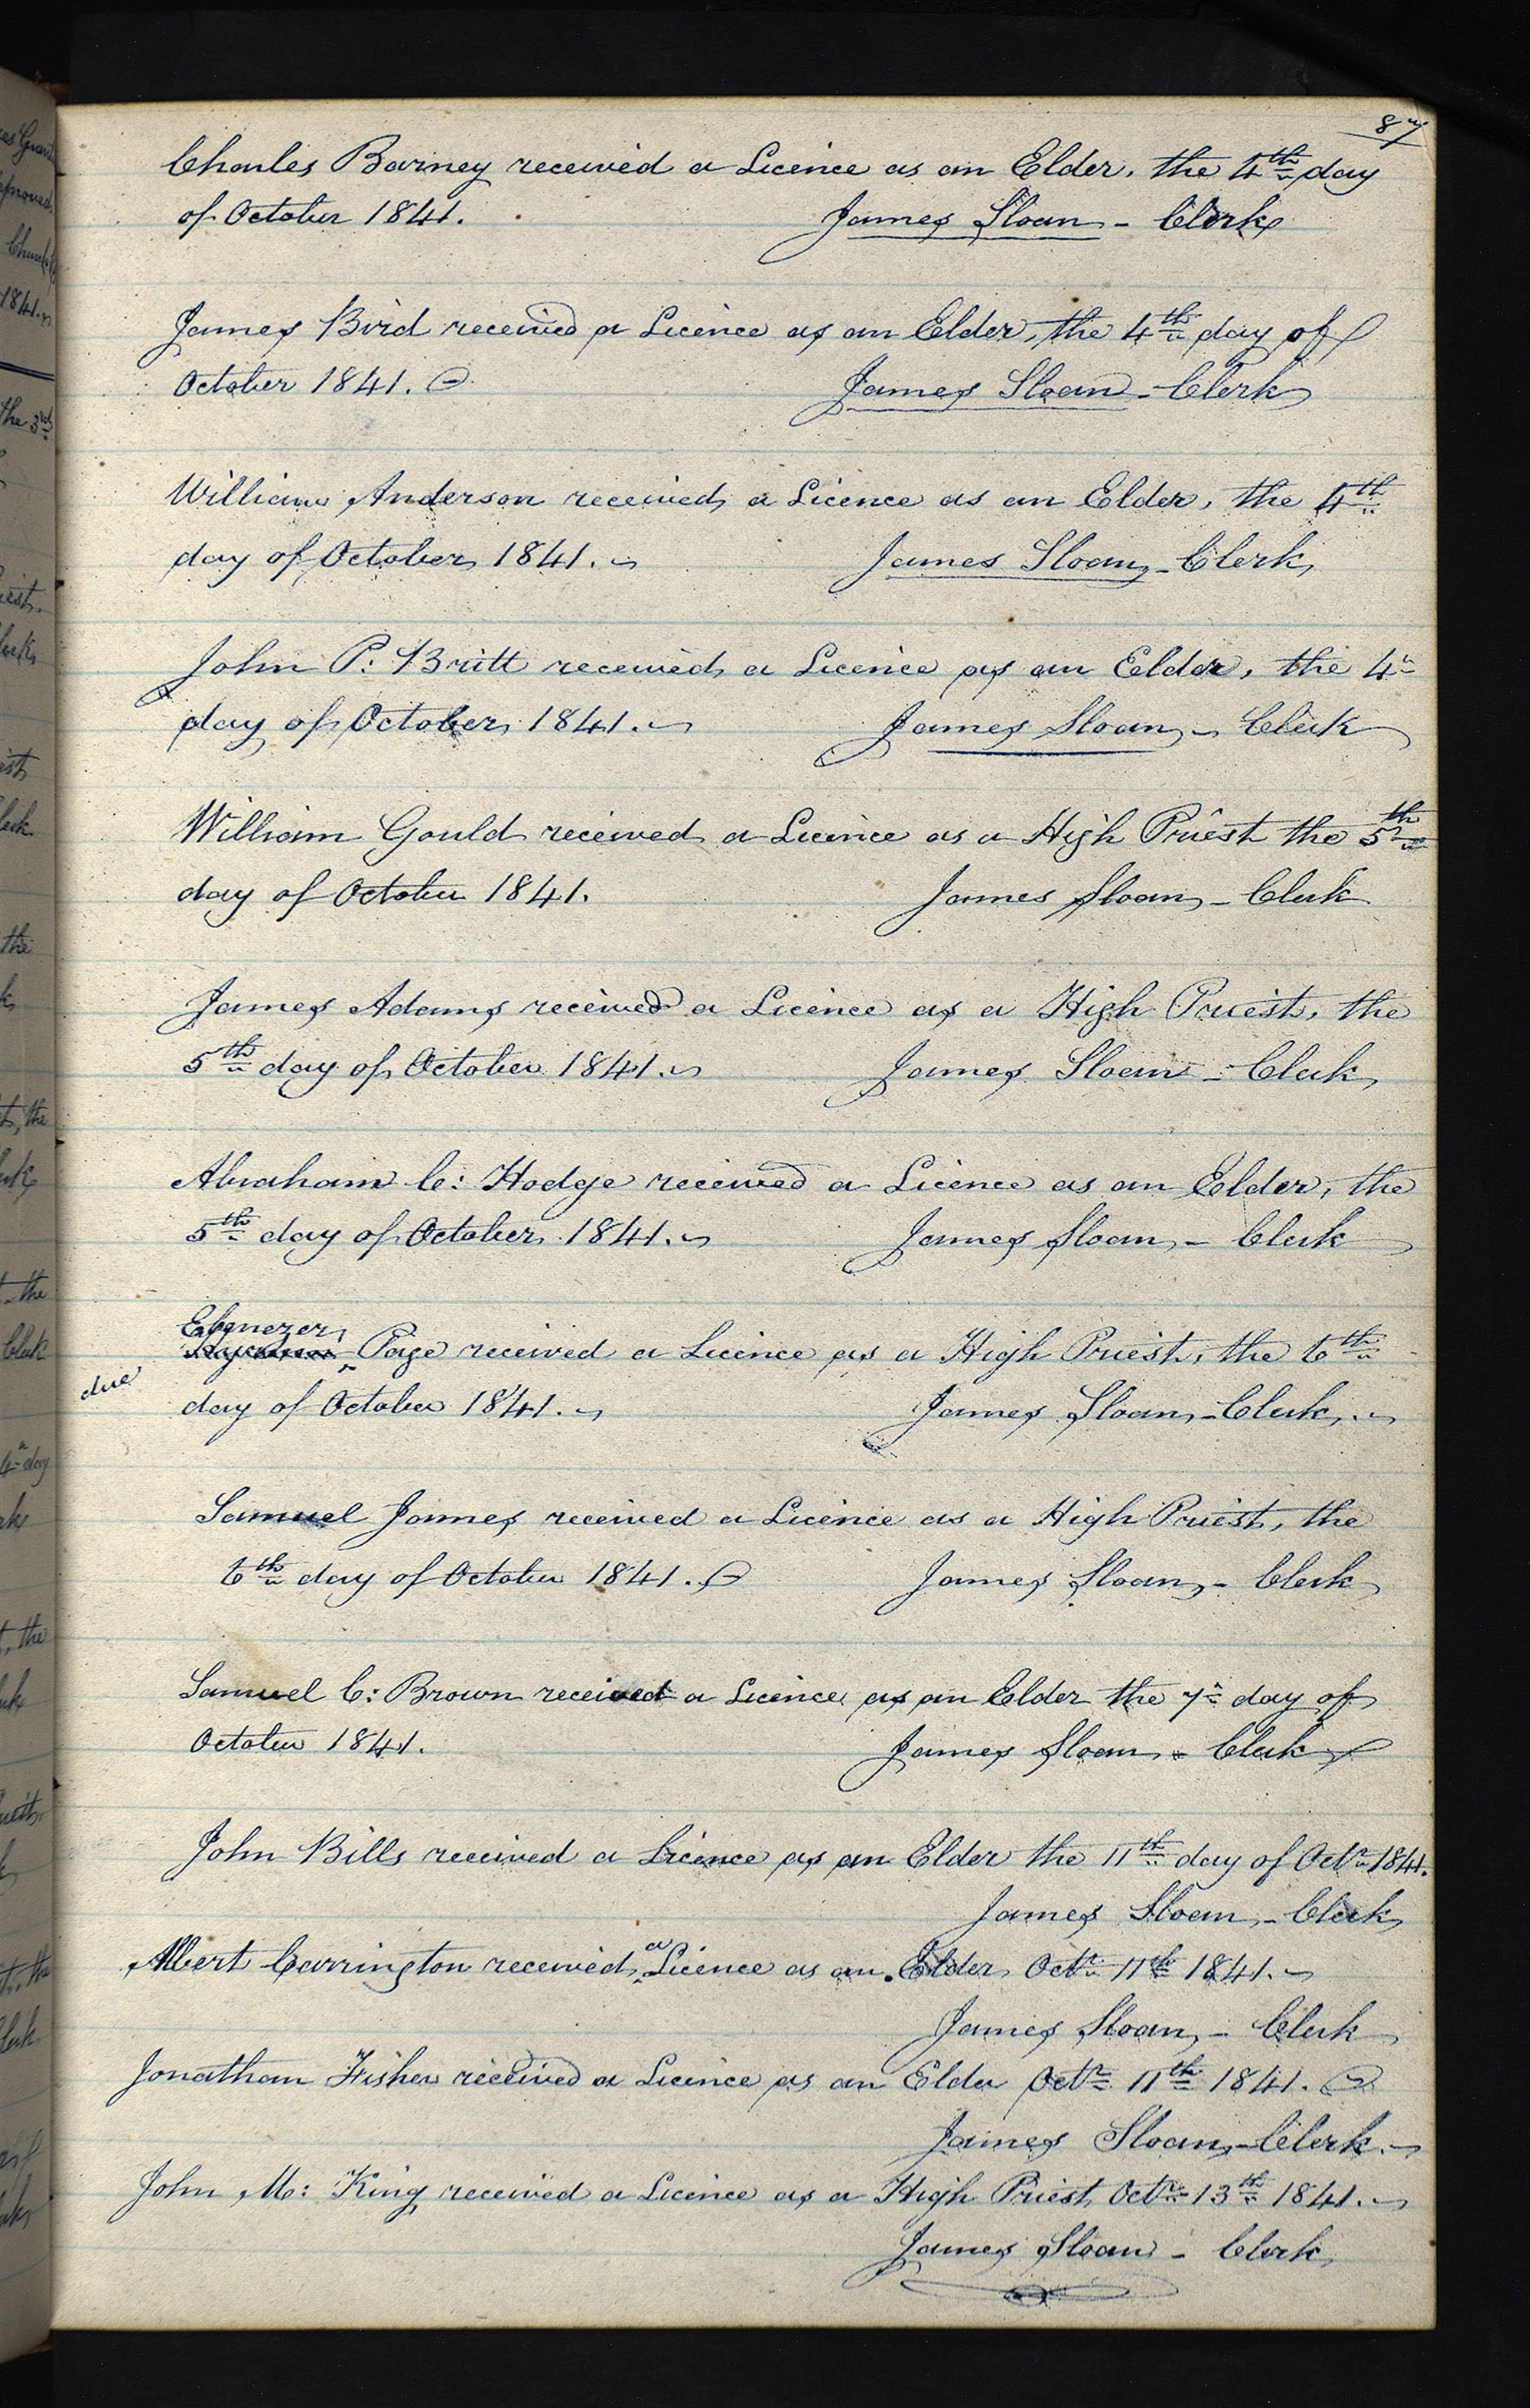 87
Charles Barney received a Licence as an Elder, the 4th day
of October 1841.
James Sloan - Clerk
James Bird received a Licence as an Elder, the 4th day of
October 1841.
James Sloan - Clerk
William Anderson received a Licence as an Elder, the 4th
day of October 1841.
James Sloan - Clerk
John P: Britt received a Licence as an Elder, the 4th
day of October 1841.
James Sloan - Clerk
William Gould received a Licence as a High Priest the 5th
day of October 1841.
James Sloan - Clerk
James Adams received a Licence as a High Priest, the
5th day of October 1841.
James Sloan - Clerk
Abraham C: Hodge received a Licence as an Elder, the
5th day of October 1841.
James Sloan - Clerk
Ebenezer
Page received a Licence as a High Priest, the 6th
due
day of October 1841.
James Sloan - Clerk
Samuel James received a Licence as a High Priest, the
6th day of October 1841.
James Sloan - Clerk
Samuel C: Brown received a Licence as an Elder the 7th day of
October 1841.
James Sloan - Clerk
John Bills received a Licence as an Elder the 11th day of Octr 1841.
James Sloan - Clerk
Albert Carrington received a Licence as an Elder Octr 11th 1841.
James Sloan - Clerk
Jonathan Fisher received a Licence as an Elder Octr 11th 1841.
James Sloan - Clerk
John M: King received a Licence as a High Priest Octr 13th 1841.
James Sloan - Clerk